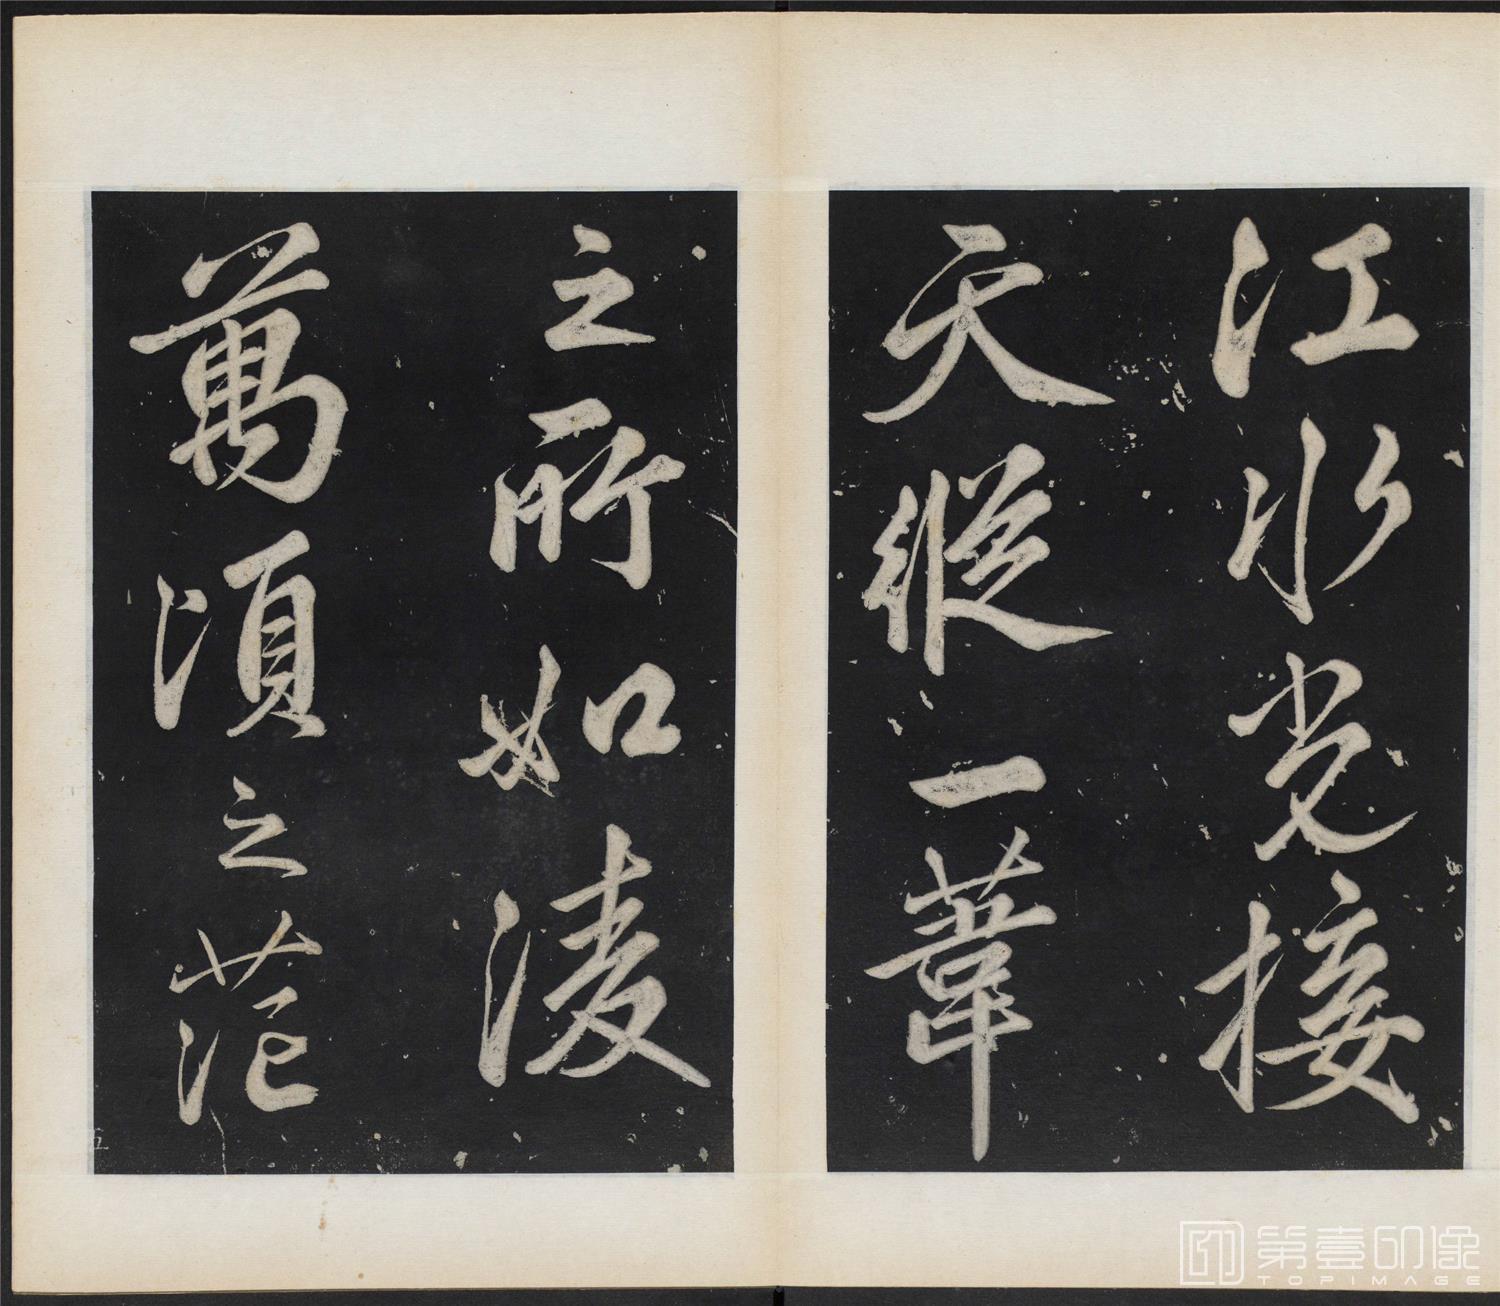 江水光接
天縱一葦
之所如凌
萬頃之茫
五
第壹印像
TOPIMAGE